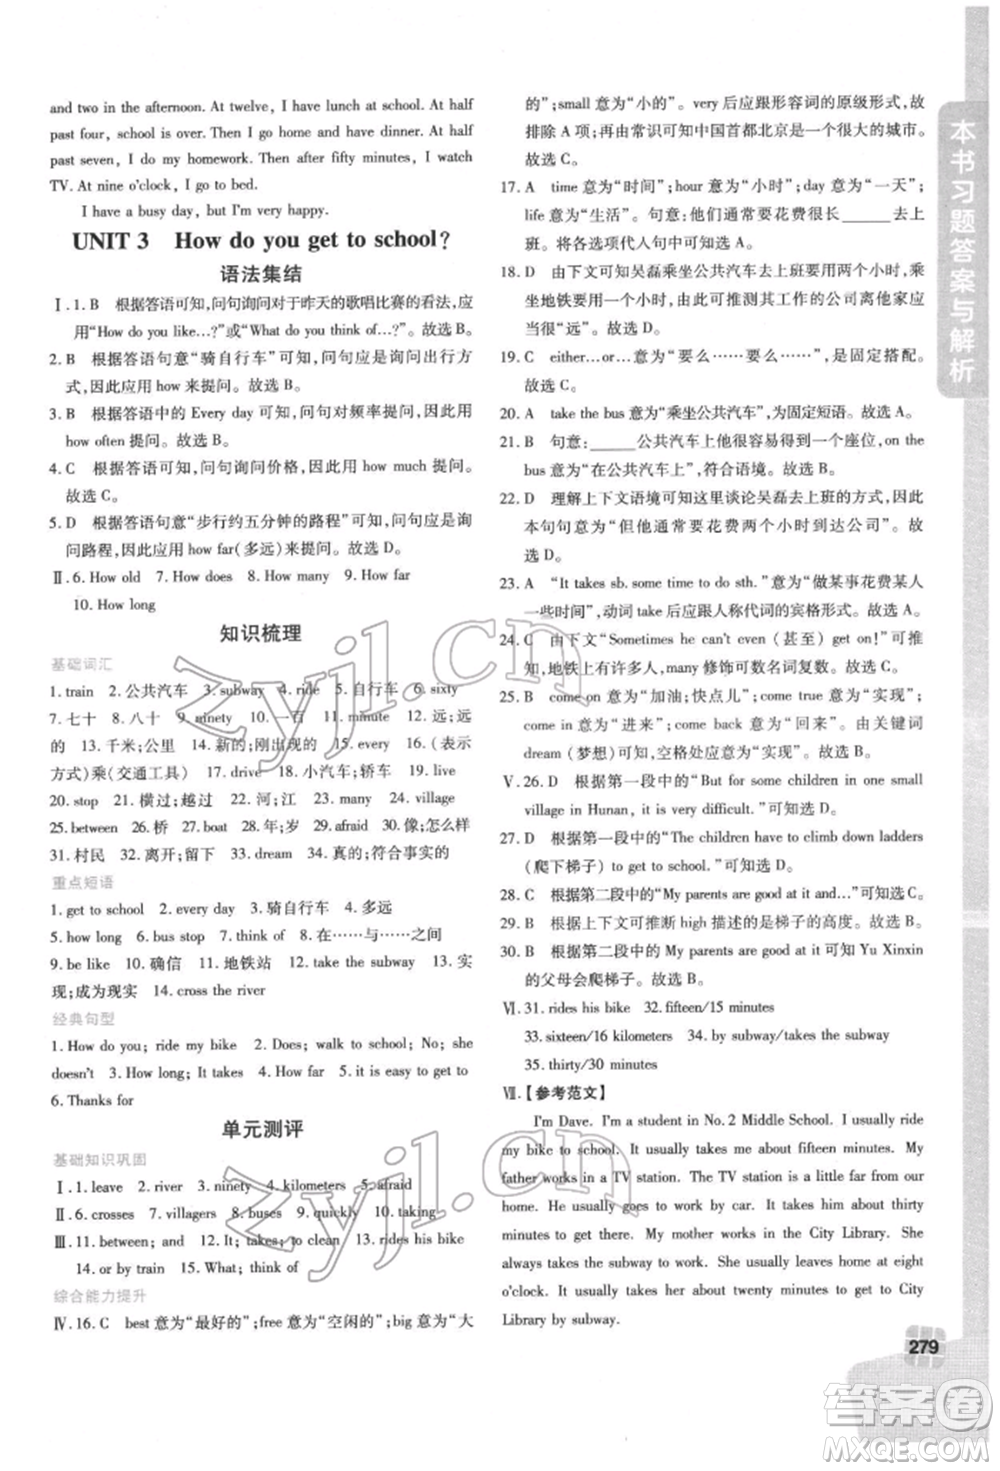 and two in the afternoon. At twelve, I have lunch at school. At half
past four, school is over. Then I go home and have dinner. At half
past seven, I do my homework. Then after fifty minutes, I watch
TV. At nine o'clock, I go to bed.
I have a busy day, but I'm very happy.
UNIT 3 How do you get to school?
语法集结
Ⅰ. 1. B 根据答语可知,问句询问对于昨天的歌唱比赛的看法,应
用“How do you like…?”或“What do you think of…?”。故选 B。
2. B 根据答语句意“骑自行车”可知,问句应是询问出行方
式,因此应用 how 来提问。故选 B。
3. B 根据答语中的 Every day 可知,问句对频率提问,应用
how often 提问。故选 B。
4. C 根据答语可知,问句询问价格,应用 how much 提问。
故选 C。
5. D 根据答语句意“步行约五分钟的路程”可知,应是询
问路程,因此应用 how far(多远)来提问。故选 D。
Ⅱ. 6. How old 7. How does 8. How many 9. How far
10. How long
知识梳理
基础词汇
1. train 2. 公共汽车 3. subway 4. ride 5. 自行车 6. sixty
7. 七十 8. 八十 9. ninety 10. 一百 11. minute 12. 远;远
的 13. 千米;公里 14. 新的;刚出现的 15. every 16. (表示
方式)乘(交通工具) 17. drive 18. 小汽车;轿车 19. live
20. stop 21. 横过;越过 22. 河;江 23. many 24. village
25. between 26. 桥 27. boat 28. 年;岁 29. afraid 30. 像;怎么样
31. 村民 32. 离开;留下 33. dream 34. 真的;符合事实的
重点短语
1. get to school 2. every day 3. 骑自行车 4. 多远
5. how long 6. bus stop 7. think of 8. 在……与……之间
9. be like 10. 确信 11. 地铁站 12. take the subway 13. 实
现;成为现实 14. cross the river
经典句型
1. How do you; ride my bike 2. Does; walk to school; No; she
doesn't 3. How long; It takes 4. How far 5. is easy to get to
6. Thanks for
单元测评
基础知识巩固
Ⅰ. 1. leave 2. river 3. ninety 4. kilometers 5. afraid
Ⅱ. 6. crosses 7. villagers 8. buses 9. quickly 10. taking
Ⅲ. 11. between; and 12. It; takes; to clean 13. rides his bike
14. or by train 15. What; think of
综合能力提升
Ⅳ. 16. C best 意为“最好的”;free 意为“空闲的”;big 意为“大
的”;small 意为“小的”。very 后应跟形容词的原级形式,故
排除 A 项;再由常识可知中国首都北京是一个很大的城市。
故选 C。
17. A time 意为“时间”;hour 意为“小时”;day 意为“一天”;
life 意为“生活”。句意:我通常要花费很长______去上
班。将各选项代入句中可知选 A。
18. D 由下文可知吴磊乘坐公共汽车去上班要两个小时,乘
坐地铁要一个小时,因此可推测其工作的公司离他家应
当很“远”。故选 D。
19. C either…or…意为“要么……要么……”,是固定搭配。
故选 C。
20. A take the bus 意为“乘坐公共汽车”,为固定短语。故选 A。
21. B 句意:______公共汽车上他很难得到一个座位,on the
bus 意为“在公共汽车上”,符合语境。故选 B。
22. D 理解上下文语境可知这里谈论吴磊去上班的方式,因此
本句句意为“但他通常要花费两个小时到达公司”。
故选 D。
23. A “It takes sb. some time to do sth.”意为“做某事花费某人
一些时间”,动词 take 后应跟人称代词的宾格形式。故选 A。
24. C 由下文“Sometimes he can't even (甚至) get on!”可
知,地铁上有许多人,many 修饰可数名词复数。故选 C。
25. B come on 意为“加油;快点儿”;come true 意为“实现”;
come in 意为“进来”;come back 意为“回来”。由关键词
dream (梦想)可知,空格处应意为“实现”。故选 B。
Ⅴ. 26. D 根据第一段中的“But for some children in one small
village in Hunan, it is very difficult.”可知选 D。
27. D 根据第一段中的“The children have to climb down ladders
(爬下梯子) to get to school.”可知选 D。
28. C 根据第二段中的“My parents are good at it and…”可知选 C。
29. B 根据上下文可推断 high 描述的是梯子的高度。故选 B。
30. B 根据第二段中的 My parents are good at it 可知 Yu Xinxin
的父母会爬梯子。故选 B。
Ⅵ. 31. rides his bike 32. fifteen/15 minutes
33. sixteen/16 kilometers 34. by subway/takes the subway
35. thirty/30 minutes
Ⅶ. 【参考范文】
I'm Dave. I'm a student in No. 2 Middle School. I usually ride
my bike to school. It usually takes me about fifteen minutes. My
father works in a TV station. The TV station is very far from our
home. He usually goes to work by car. It takes him about thirty
minutes to get there. My mother works in the City Library. She
always takes the subway to work. She leaves home at eight
o'clock. It usually takes her about twenty minutes to get to City
Library by subway.
本书习题答案与解析
279
zyjl.cn
zyjl.cn
答案圈
MXQE.COM